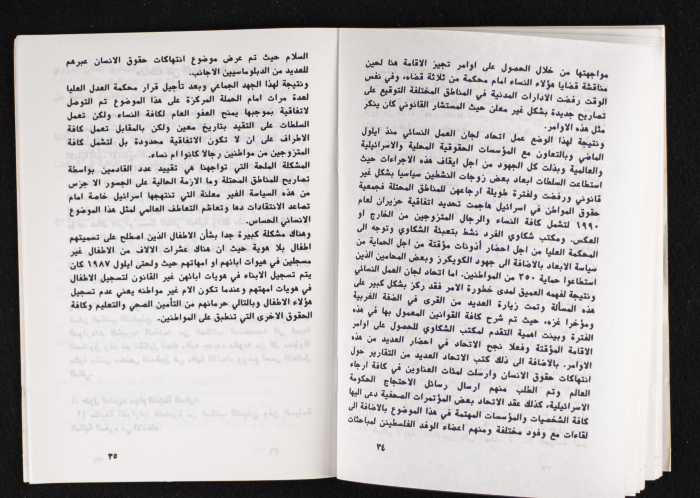 مواجهتها من خلال الحصول على اوامر تجيز الاقامة هنا لحين
مناقشة قضايا هؤلاء النساء امام محكمة من ثلاثة قضاه، وفي نفس
الوقت رفضت الادارات المدنية في المناطق المختلفة التوقيع على
تصاريح جديدة بشكل غير معلن حيث المستشار القانوني كان ينكر
مثل هذه الاوامر.
ونتيجة لهذا الوضع عمل اتحاد لجان العمل النسائي منذ ايلول
الماضي وبالتعاون مع المؤسسات الحقوقية المحلية والاسرائيلية
والعالمية وبذلت كل الجهود من اجل ايقاف هذه الاجراءات حيث
استطاعت السلطات ابعاد بعض زوجات النشطين سياسيا بشكل غير
قانوني ورفضت ولفترة طويلة ارجاعهن للمناطق المحتلة فجمعية
حقوق المواطن في اسرائيل هاجمت تحديد اتفاقية حزيران لعام
١٩٩٠ لتشمل كافة النساء والرجال المتزوجين من الخارج او
العكس. ومكتب شكاوي الفرد نشط بتعبئة الشكاوي وتوجه الى
المحكمة العليا من اجل احضار أذونات مؤقتة من اجل الحماية من
سياسة الابعاد بالاضافة الى جهود الكويكرز وبعض المحامين الذين
استطاعوا حماية ٣٥٠ من المواطنين. اما اتحاد لجان العمل النسائي
ونتيجة لفهمه العميق لمدى خطورة الامر فقد ركز بشكل كبير على
هذه المسألة وتمت زيارة العديد من القرى في الضفة الغربية
ومؤخرا غزه، حيث تم شرح كافة القوانين المعمول بها في هذه
الفترة وبينت اهمية التقدم لمكتب الشكاوي للحصول على اوامر
الاقامة المؤقتة وفعلا نجح الاتحاد في احضار العديد من هذه
الاوامر. بالاضافة الى ذلك كتب الاتحاد العديد من التقارير حول
أنتهاكات حقوق الانسان وارسلت لمئات العناوين في كافة ارجاء
العالم وتم الطلب منهم ارسال رسائل الاحتجاج الحكومة
الاسرائيلية، كذلك عقد الاتحاد بعض المؤتمرات الصحفية دعى اليها
كافة الشخصيات والمؤسسات المهتمة في هذا الموضوع بالاضافة الى
لقاءات مع وفود مختلفة ومنهم اعضاء الوفد الفلسطيني لمباحثات
٣٤
السلام حيث تم عرض موضوع انتهاكات حقوق الانسان عبرهم
للعديد من الدبلوماسيين الاجانب.
ونتيجة لهذا الجهد الجماعي وبعد تأجيل قرار محكمة العدل العليا
لعدة مرات امام الحملة المركزة على هذا الموضوع تم التوصل
لاتفاقية بموجبها يمنح العفو العام لكافة النساء ولكن تعمل
السلطات على التقيد بتاريخ معين ولكن بالمقابل تعمل كافة
الاطراف على ان لا تكون الاتفاقية محدودة بل لتشمل كافة
المتزوجين من مواطنين رجالا كانوا ام نساء.
المشكلة الملحة التي تواجهنا هي تقييد عدد القادمين بواسطة
تصاريح للمناطق المحتلة وما الازمة الحالية على الجسور الا جزس
من هذه السياسة الغير معلنة التي تنتهجها اسرائيل خاصة امام
تصاعد الانتقادات وتعاظم التعاطف العالمي لمثل هذا الموضوع
الانساني الحساس.
وهناك مشكلة كبيرة جدا بشأن الاطفال الذين اصطلح على تسميتهم
اطفال بلا هوية حيث ان هناك عشرات الالاف من الاطفال غير
مسجلين في هيوات ابائهم او امهاتهم وحتى ايلول ١٩٨٧ كان
يتم تسجيل الابناء في هويات ابائهن غير القانون لتسجيل الاطفال
في هويات امهاتهم وعندما تكون الام غير مواطنه يعني عدم تسجيل
هؤلاء الاطفال وبالتالي حرمانهم من التأمين الصحي والتعليم وكافة
الحقوق الاخرى التي تنطبق على المواطنين.
٣٥